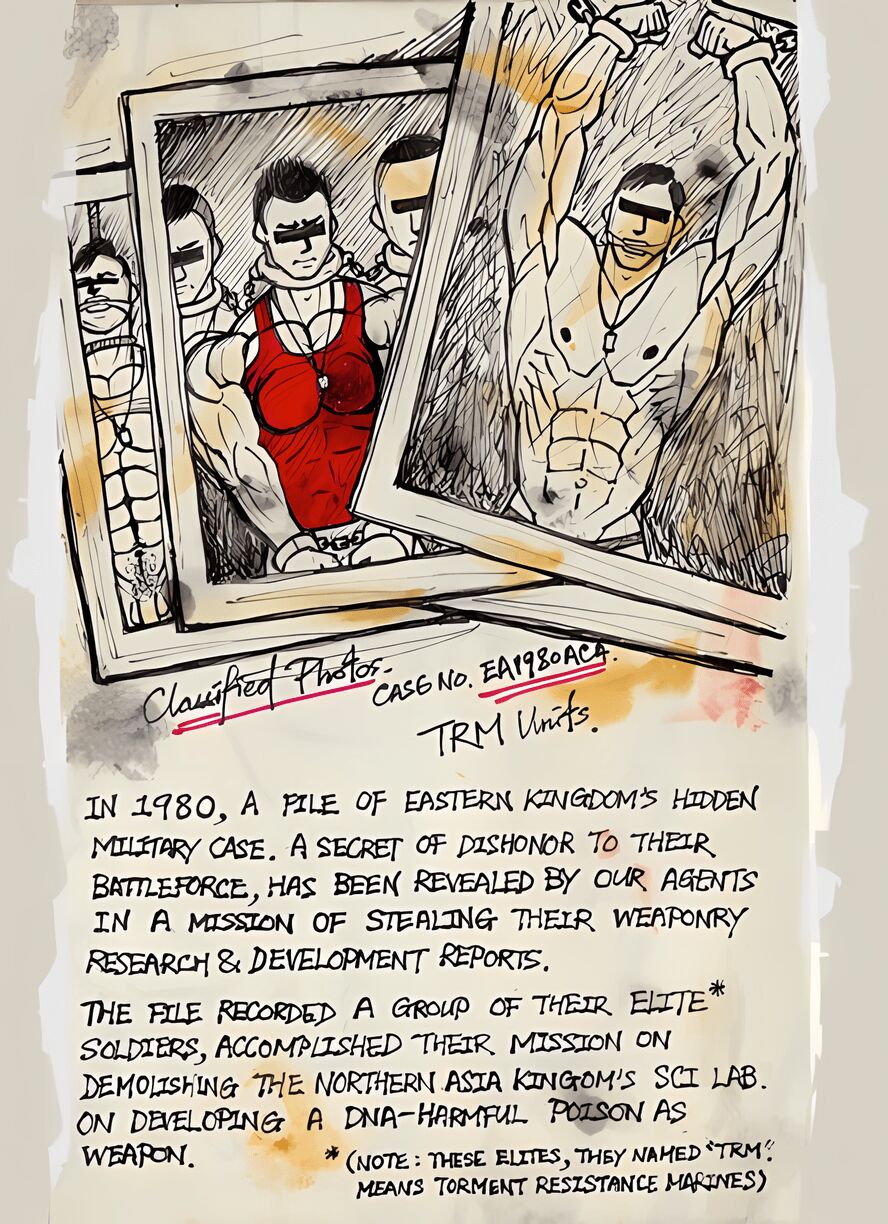 Classified Photos.
CASE NO. EA1980ACA.
TRM Units.
IN 1980, A FILE OF EASTERN KINGDOM'S HIDDEN
MILITARY CASE. A SECRET OF DISHONOR TO THEIR
BATTLEFORCE, HAS BEEN REVEALED BY OUR AGENTS
IN A MISSION OF STEALING THEIR WEAPONRY
RESEARCH & DEVELOPMENT REPORTS.
THE FILE RECORDED A GROUP OF THEIR ELITE*
SOLDIERS, ACCOMPLISHED THEIR MISSION ON
DEMOLISHING THE NORTHERN ASIA KINGOM'S SCI LAB.
ON DEVELOPING A DNA-HARMFUL POISON AS
WEAPON.
* (NOTE: THESE ELITES, THEY NAMED "TRM".
MEANS TORMENT RESISTANCE MARINES)